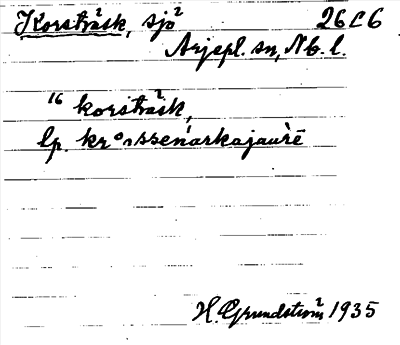 Korsträsk, sjö 26L6
Arjepl. sn, Nb. l.
16 korsträsk,
lp. kr°åssen̄arkajaurē
H. Grundström 1935